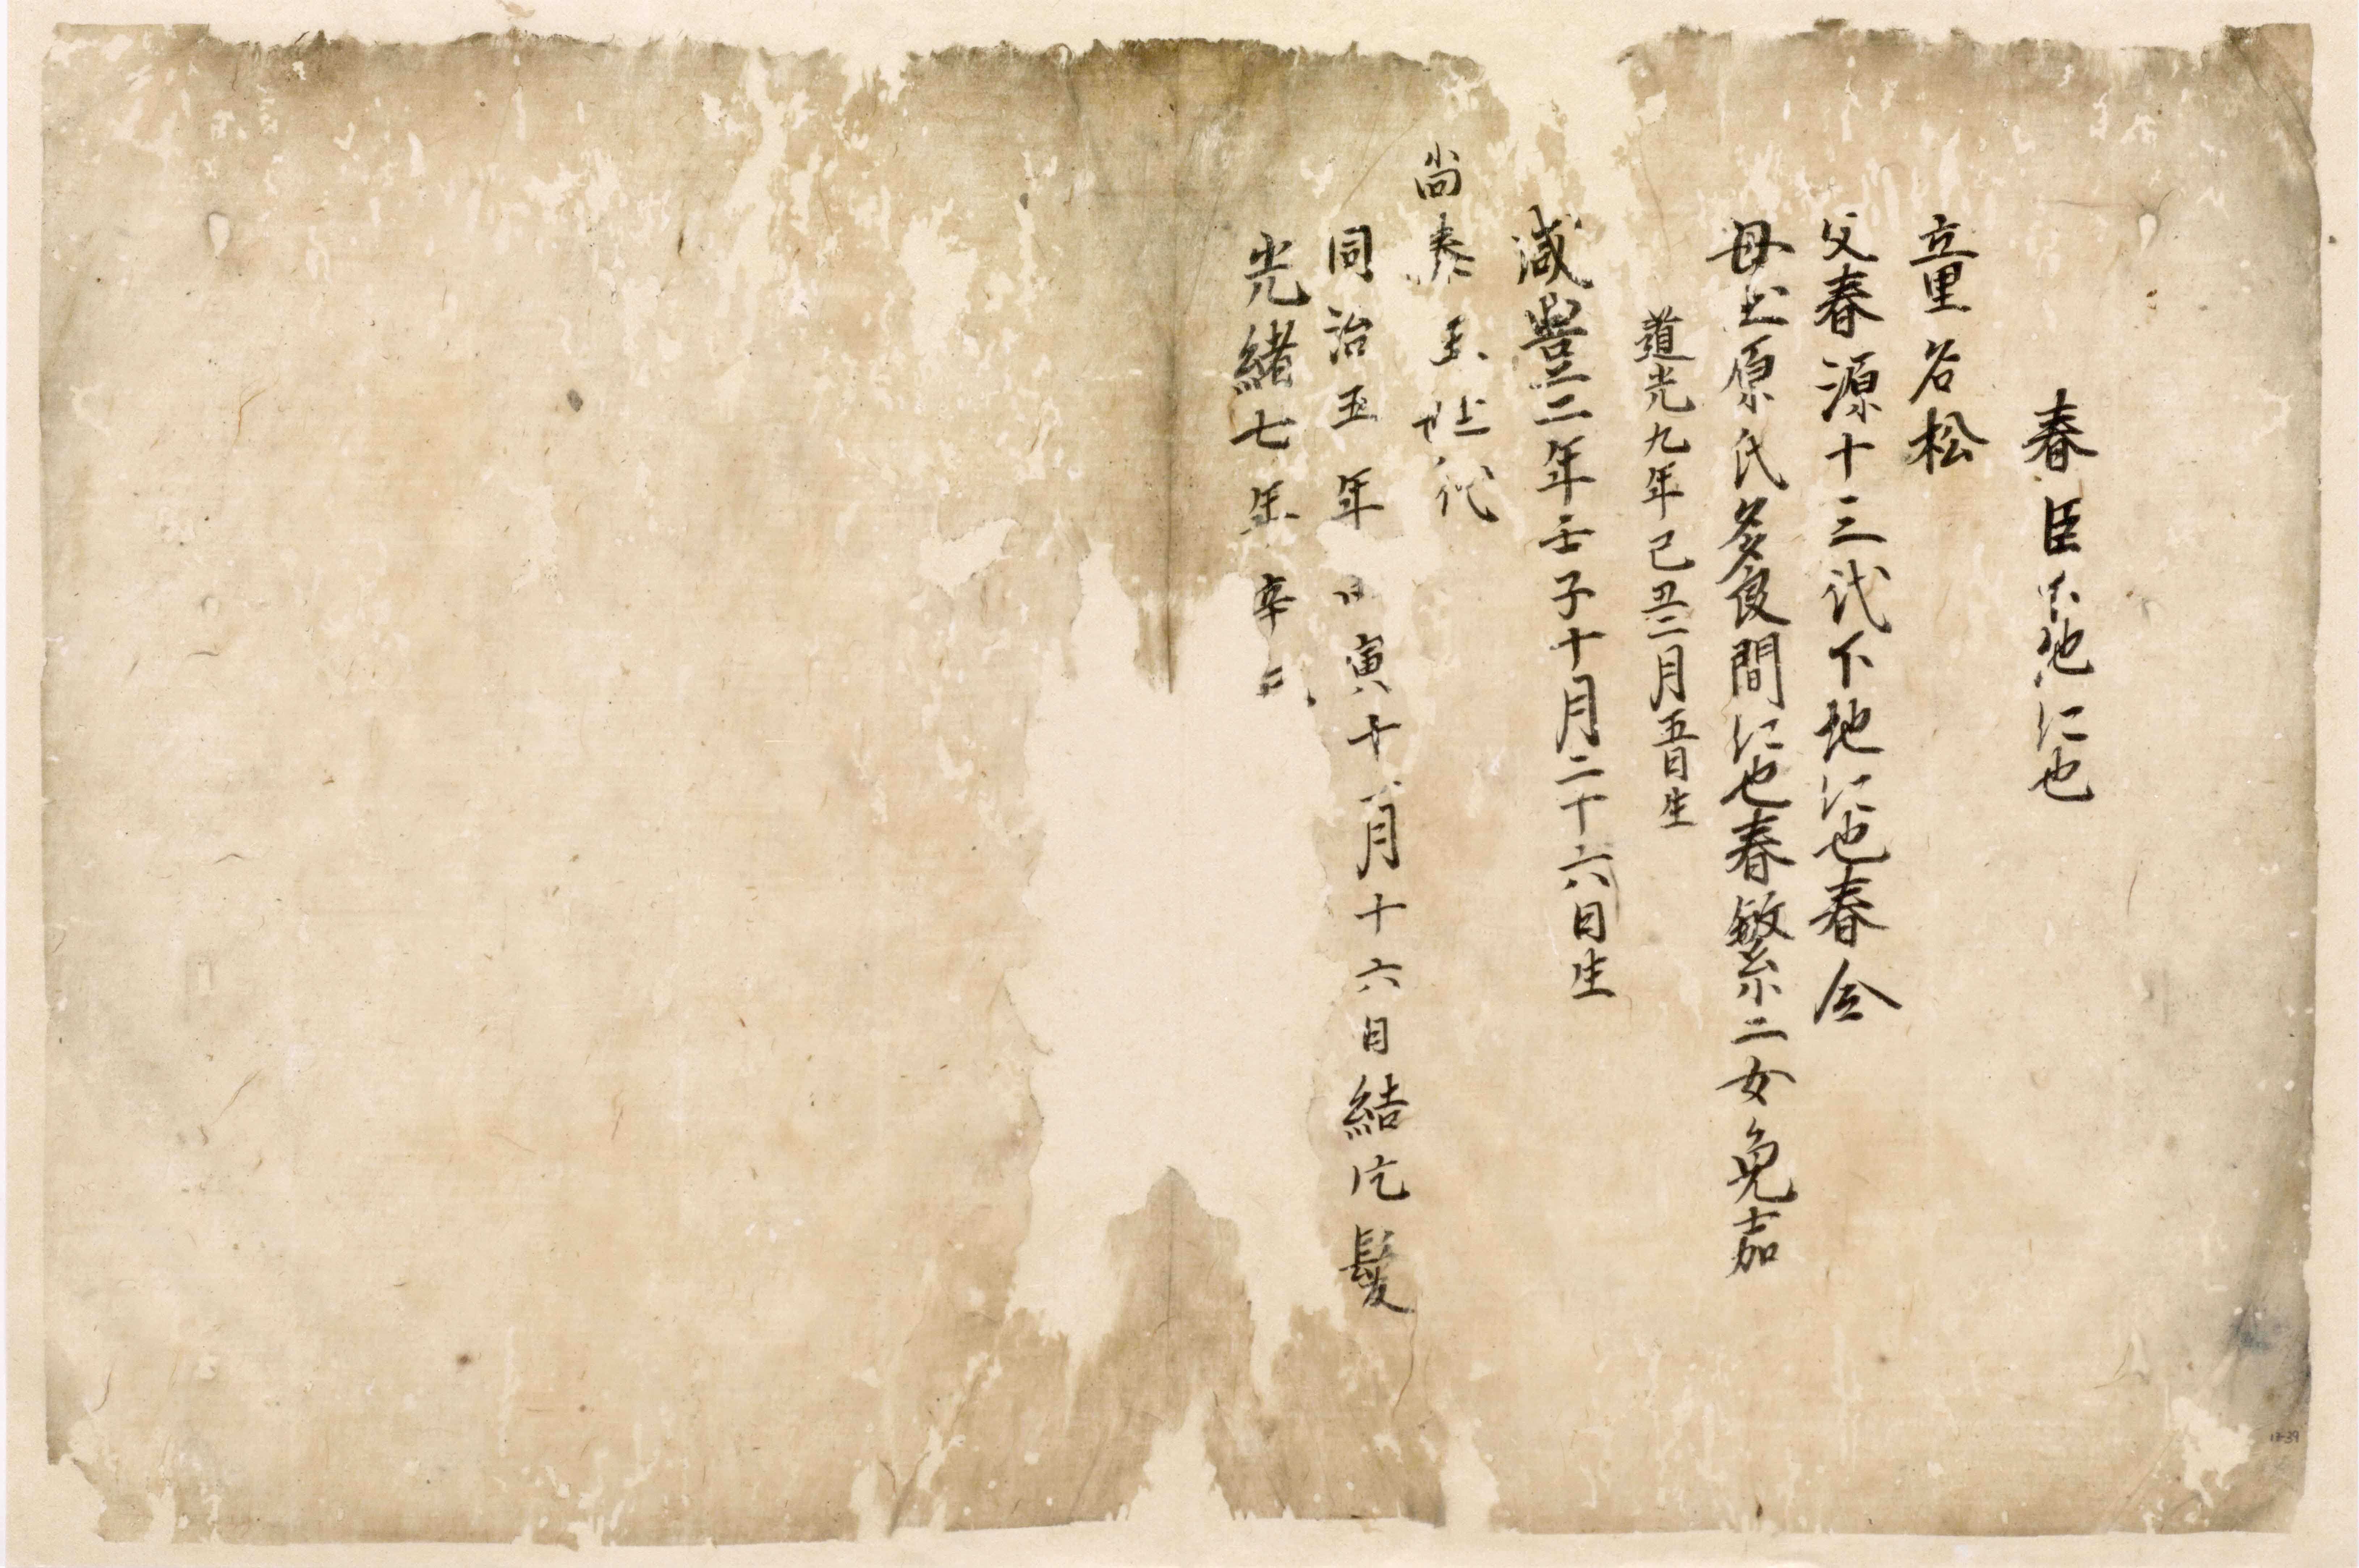 春臣 地仁也
童名松
父春源十三代下地仁也春令
母上原氏多良間仁也春繁二女免嘉
道光九年己丑二月五日生
咸豊二年壬子十月二十六日生
尚泰王世代
同治五年 寅十 月十六日結片髪
光緒七年辛
12-39